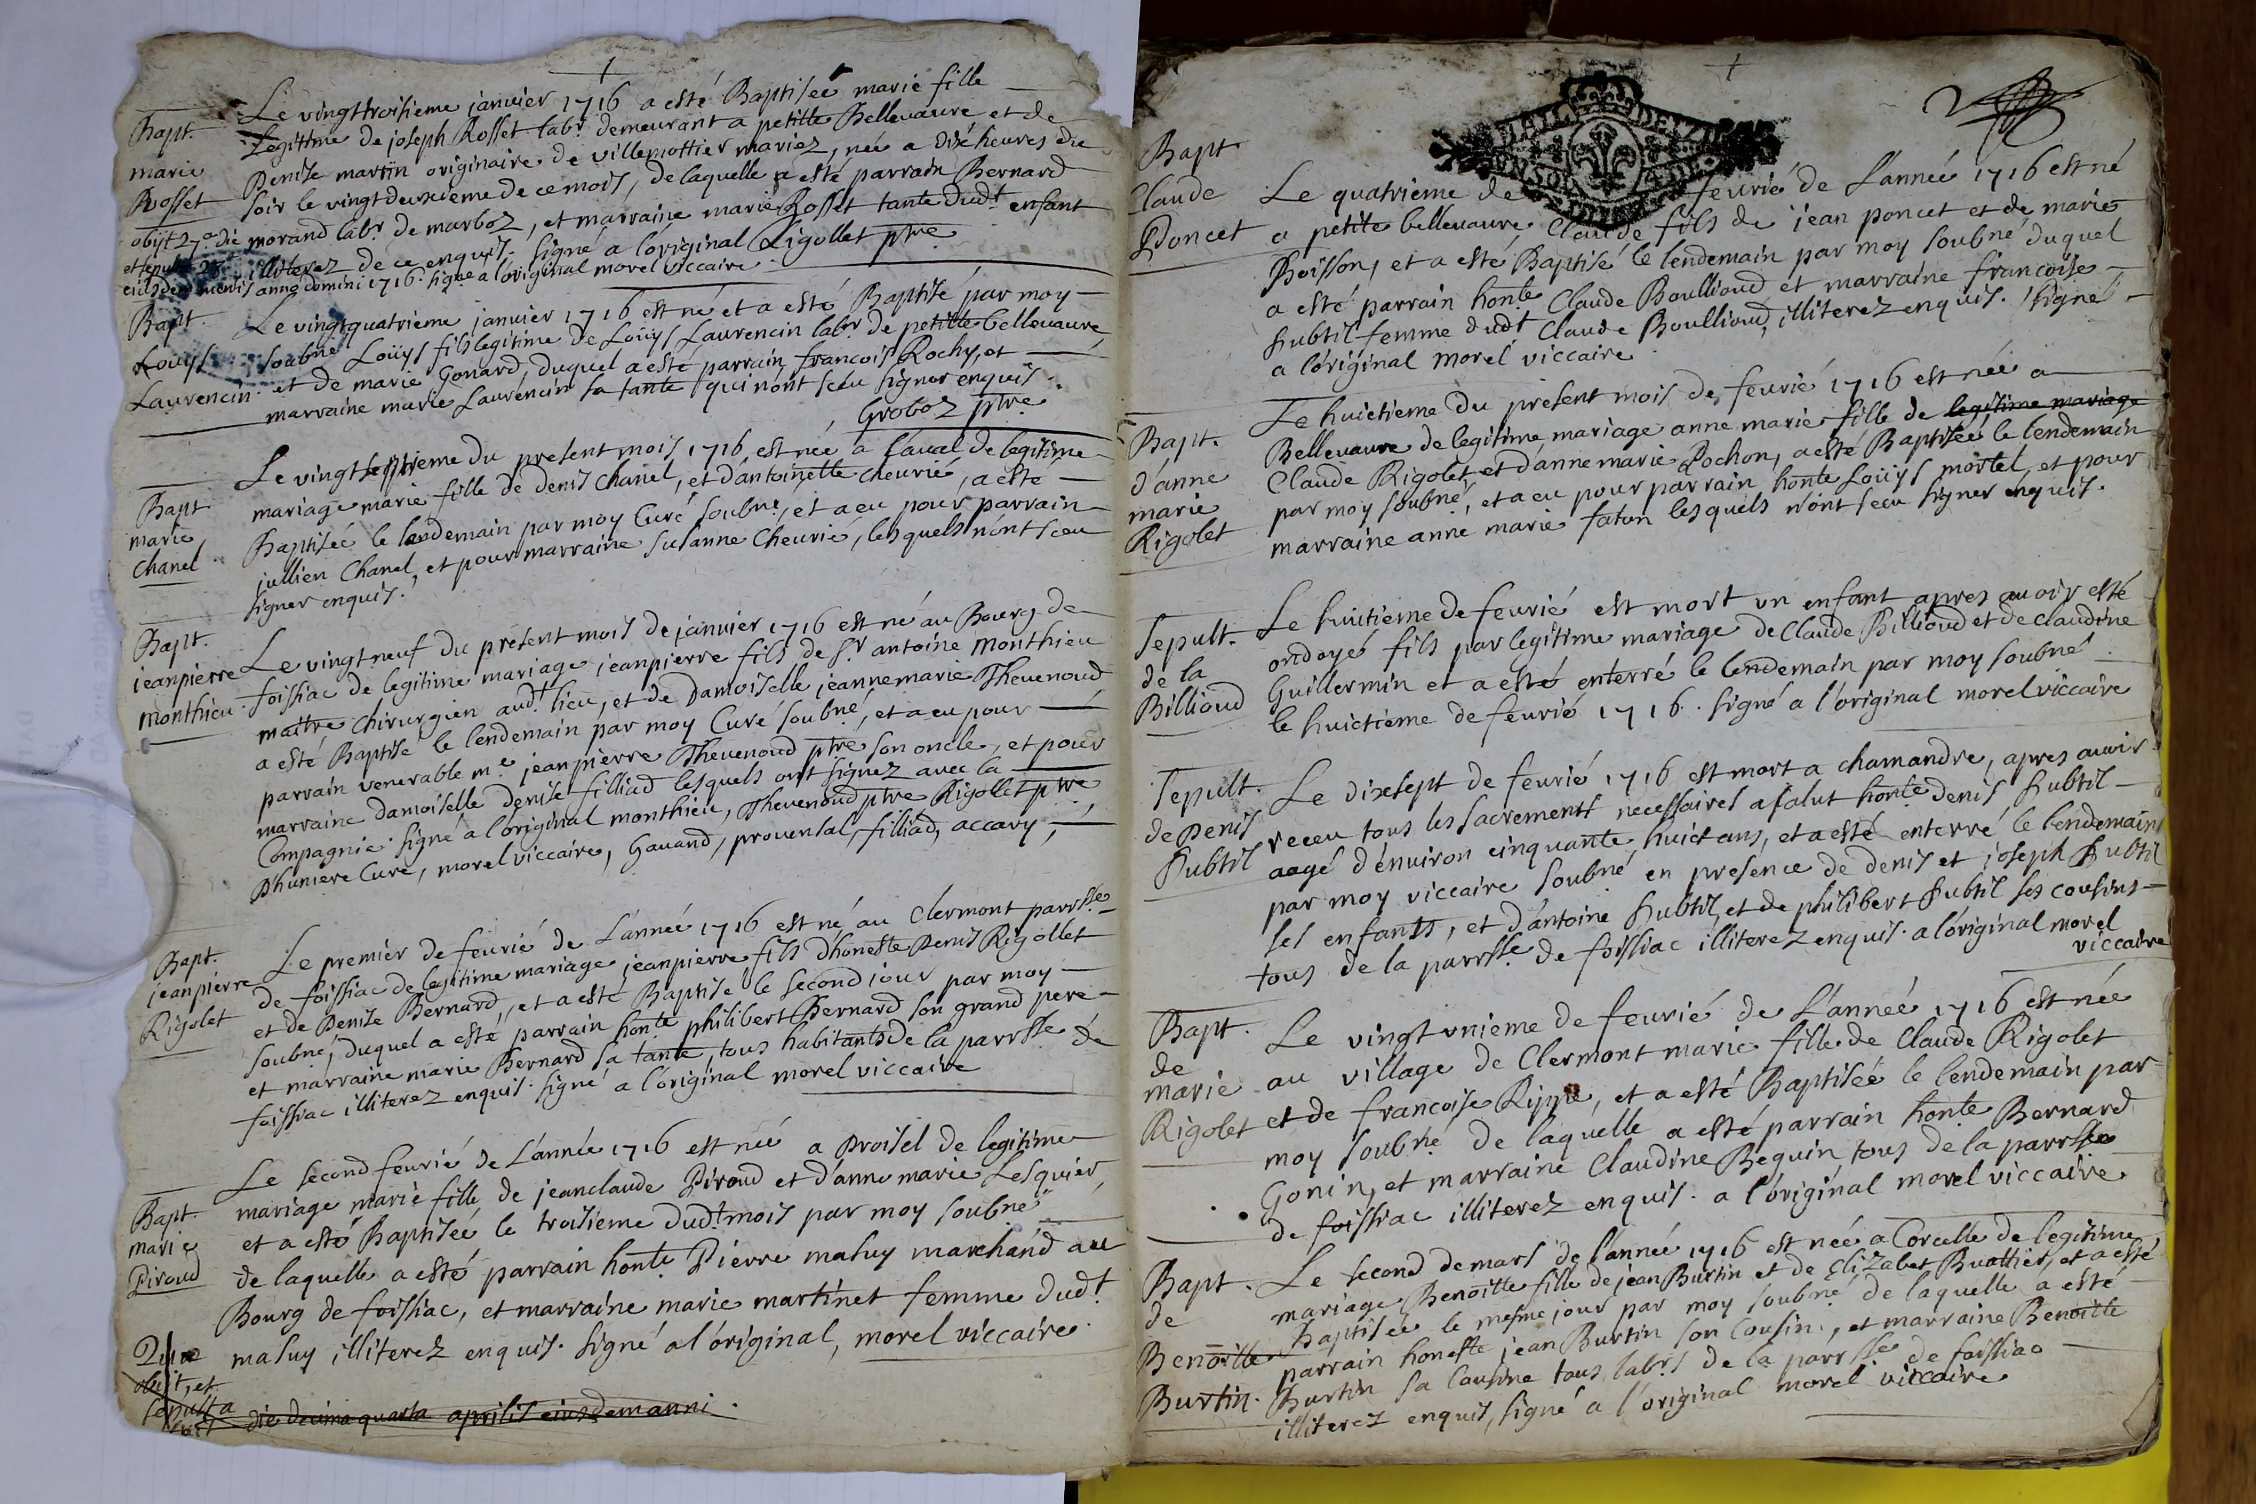 Bapt.
marie
Rosset
obijt 27a die
et sepulta
eiusdem mensis anno domini 1716. signé a l'original morel viccaire
Le vingttroisieme janvier 1716 a esté Baptiseé marie fille
Legitime de joseph Rosset labr. demeurant a petitte Bellevavre et de
Denise martin originaire de villemottier mariez, née a dix heures du
soir le vingtdeuxieme de ce mois, de laquelle a esté parrain Bernard
morand labr. de marboz, et marraine marie Rosset tante dudt. enfant
illiterez de ce enquis. signé a l'original Rigollet ptre
Bapt.
Louys
Laurencin
Le vingtquatrieme janvier 1716 est né et a esté Baptisé par moy
soubné Loüys fils legitime de Loüys Laurencin labr. de petitte bellevavre
et de marie Gonard, duquel a esté parrain francois Rochy, et
marraine marie Laurencin sa tante qui n'ont sceu signer enquis.
Groboz ptre
Bapt
marie
Chanel
Le vingtseptieme du present mois 1716 est née a laval de legitime
mariage marie fille de denis Chanel, et d'antoinette cheurié, a esté
Baptiseé le lendemain par moy Curé soubné, et a eu pour parrain
jullien Chanel, et pour marraine susanne Cheurié, lesquels n'ont sceu
signer enquis.
Bapt.
jeanpierre
monthieu
Le vingt neuf du present mois de janvier 1716 est né au Bourg de
foissiac de legitime mariage jeanpierre fils de Sr. antoine Monthieu
maitre Chirurgien audt. lieu, et de Damoiselle jeannemarie Thevenoud
a esté Baptisé le lendemain par moy Curé soubné, et a eu pour
parrain venerable me. jeanpierre Thevenoud ptre son oncle, et pour
marraine damoiselle Denise filliad lesquels ont signez avec la
Compagnie. signé a l'original monthieu, Thevenoud ptre Rigollet ptre
Dhumiere Curé, morel viccaire, Gavand, prouensal, filliad, accary,
Bapt.
jeanpierre
Rigolet
Le premier de feurié de L'anneé 1716 est né au Clermont parrsse
de foissiac de legitime mariage jeanpierre fils d'honeste Denis Rigollet
et de Denise Bernard, et a esté Baptisé le second jour par moy
soubné, duquel a esté parrain honte philibert Bernard son grand pere
et marraine marie Bernard sa tante, tous habitants de la parrsse de
foissiac illiterez enquis. signé a l'original morel viccaire
Bapt.
marie
Piroud
Le second feurié de L'année 1716 est née a Proisel de legitime
mariage marie fille de jeanclaude Piroud et d'anne marie Lesquier,
et a esté Baptiseé le troisieme dudt. mois par moy soubné
de laquelle a esté parrain honte Pierre masuy marchand au
Bourg de foissiac, et marraine marie martinet femme dudt.
masuy illiterez enquis. signé a l'original, morel viccaire.
Quae
obijt, et
sepulta
die decima quarta aprilis eiusdem anni.
Bapt
Claude
Poncet
Le quatrieme de feurié de L'anneé 1716 est né
a petite bellevavre Claude fils de jean poncet et de marie
Boisson, et a esté Baptisé le lendemain par moy soubné duquel
a esté parrain honte Claude Boullioud et marraine francoise
subtil femme dudt. Claude Boullioud, illiterez enquis. signé
a l'original morel viccaire
Bapt.
d'anne
marie
Rigolet
Le huictieme du present mois de feurié 1716 est née a
Bellevavre de legitime mariage anne marie fille de legitime mariage
Claude Rigolet et d'anne marie Rochon, a esté Baptiseé le lendemain
par moy soubné, et a eu pour parrain honte Louys mortel, et pour
marraine anne marie faton lesquels n'ont sceu signer enquis.
Sepult.
de la
Billioud
Le huictieme de feurié est mort un enfant apres avoir esté
ondoyé fils par legitime mariage de Claude Billioud et de claudine
Guillermin et a esté enterré le lendemain par moy soubné
le huictieme de feurié 1716. signé a l'original morel viccaire
Sepult.
de Denis
subtil
Le dixsept de feurié 1716 est mort a chamandre, apres avoir
receu tous les sacrements necessaires a salut honte denis subtil
aagé d'environ cinquante huict ans, et a esté enterré le lendemain
par moy viccaire soubné en presence de denis et joseph subtil
ses enfants, et d'antoine subtil, et de philibert subtil ses cousins
tous de la parrsse. de foissiac illiterez enquis. a l'original morel
viccaire
Bapt.
de
marie
Rigolet
Le vingt unieme de feurié de L'anneé 1716 est née
au village de Clermont marie fille de Claude Rigolet
et de francoise Rippe, et a esté Baptiseé le lendemain par
moy soubné de laquelle a esté parrain honte Bernard
Gonin, et marraine Claudine Beguin tous de la parrsse
de foissiac illiterez enquis. a l'original morel viccaire
Bapt.
de
Benoitte
Burtin.
Le second de mars de l'anneé 1716 est née a Corcelle de legitime
mariage Benoitte fille de jean Burtin et de Elizabet Buattier, et a esté
Baptiseé le mesme jour par moy soubné de laquelle a esté
parrain honeste jean Burtin son Cousin, et marraine Benoitte
Burtin sa Cousine tous labrs. de la parrsse de foissiac
illiterez enquis, signé a l'original morel viccaire